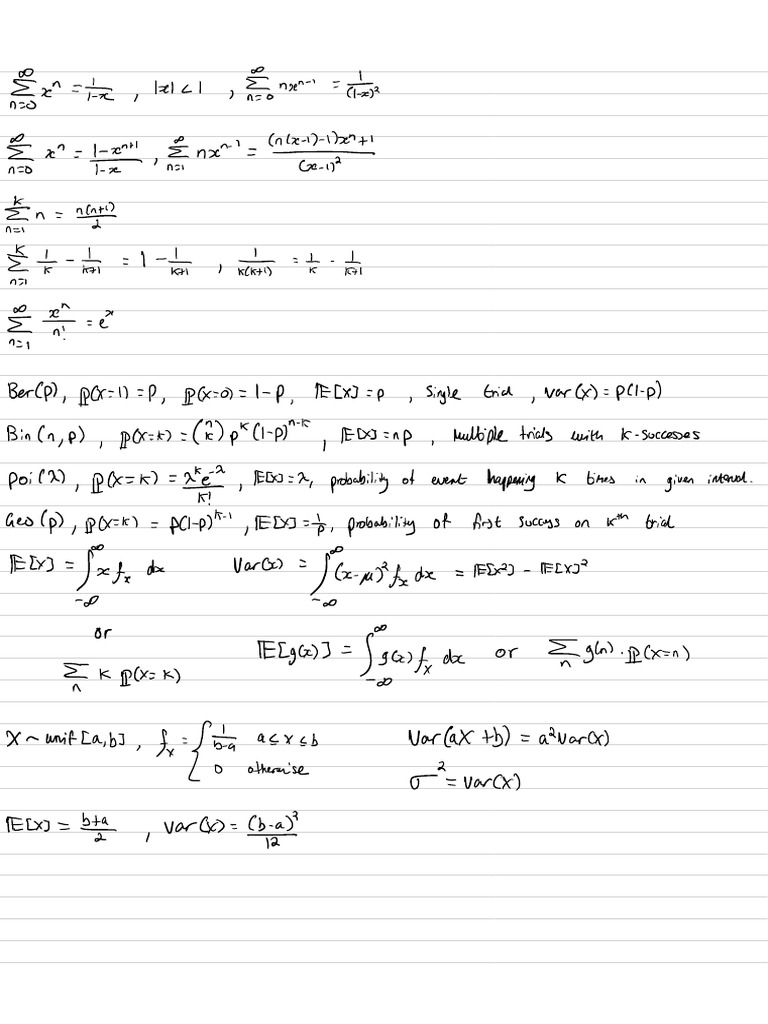 ∞∑n=0 xⁿ = 1/(1-x) , |x| < 1 , ∞∑n=0 nxⁿ⁻¹ = 1/(1-x)²
∞∑n=0 xⁿ = (1-xⁿ⁺¹)/(1-x) , ∞∑n=1 nxⁿ⁻¹ = ((n(x-1)-1)xⁿ+1)/(x-1)²
k∑n=1 n = n(n+1)/2
k∑n=1 1/k - 1/(k+1) = 1 - 1/(k+1) , 1/(k(k+1)) = 1/k - 1/(k+1)
∞∑n=1 xⁿ/n! = eˣ
Ber(p), ℙ(X=1) = p, ℙ(X=0) = 1-p, 𝔼[X]=p , Single trial, Var(X) = p(1-p)
Bin(n,p) , ℙ(X=k) = (n k) pᵏ(1-p)ⁿ⁻ᵏ , 𝔼[X]=np , Multiple trials with k-successes
Poi(λ), ℙ(X=k) = λᵏe^(-λ)/k! , 𝔼[X]=λ, probability of event happening k times in given interval.
Geo(p), ℙ(X=k) = p(1-p)ᵏ⁻¹ , 𝔼[X]=1/p, probability of first success on kᵗʰ trial
𝔼[X] = ∫_{-∞}^{∞} x fₓ dx Var(X) = ∫_{-∞}^{∞} (x-μ)² fₓ dx = 𝔼[X²] - 𝔼[X]²
or
∑n k ℙ(X=k) 𝔼[g(x)] = ∫_{-∞}^{∞} g(x) fₓ dx or ∑n g(n)·ℙ(X=n)
X ~ unif[a,b] , fₓ = { 1/(b-a) a ≤ x ≤ b Var(aX+b) = a²Var(X)
0 otherwise σ² = Var(X)
𝔼[X] = (b+a)/2 , Var(X) = (b-a)²/12